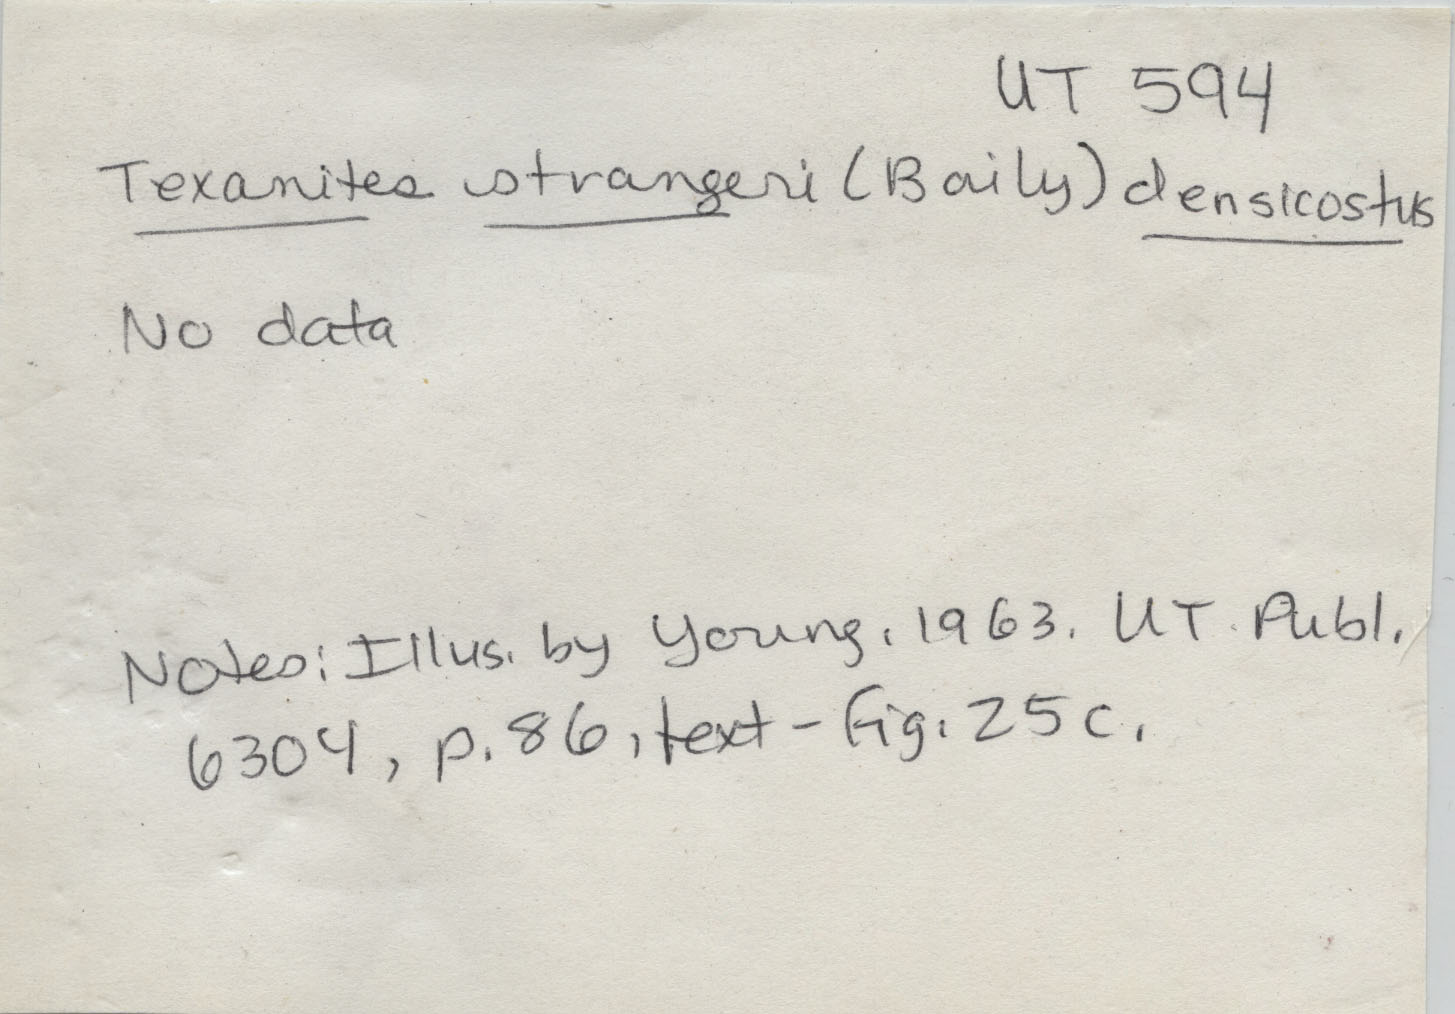 UT 594
Texanites strangeri (Baily) densicostus
No data
Notes: Illus. by Young, 1963. UT Publ.
6304, p. 86, text-fig. 25c.